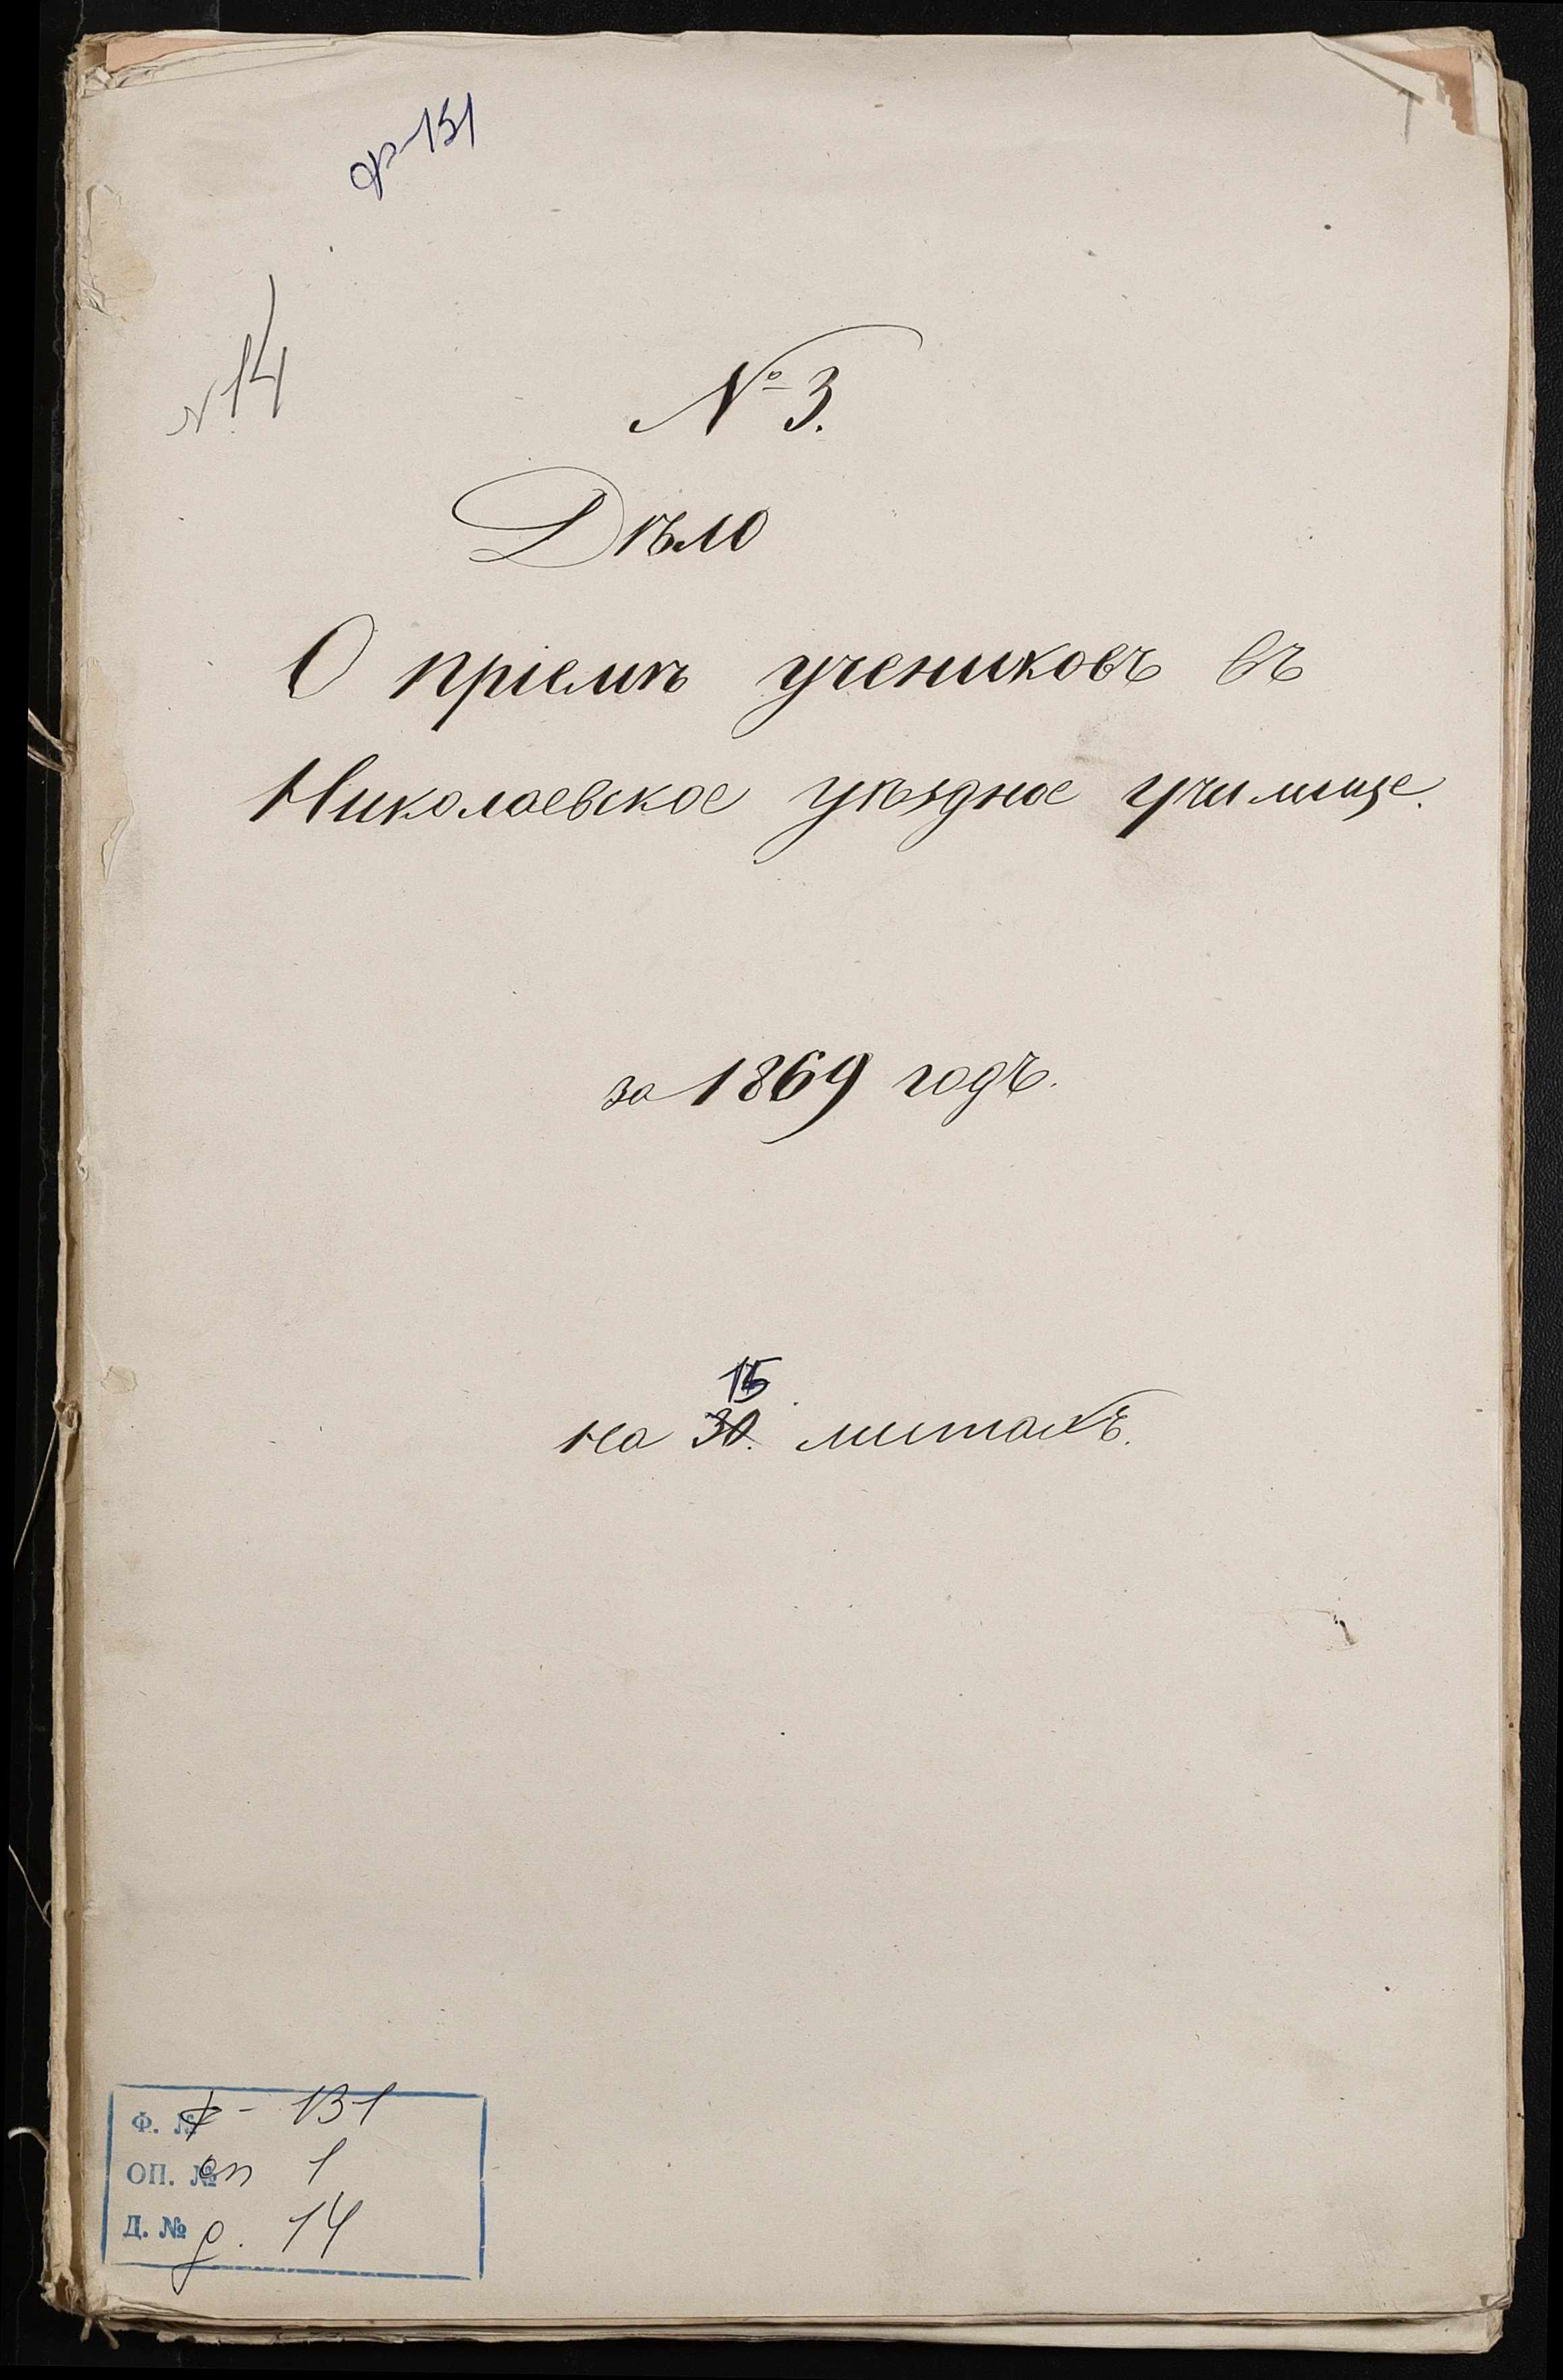 ф-131
№ 14
№ 3.
Дѣло
О пріемѣ учениковъ въ
Николаевское уѣздное училище.
за 1869 годъ.
15
на 30. листахъ.
Ф. № ф - 131
ОП. № оп 1
Д. № д. 14